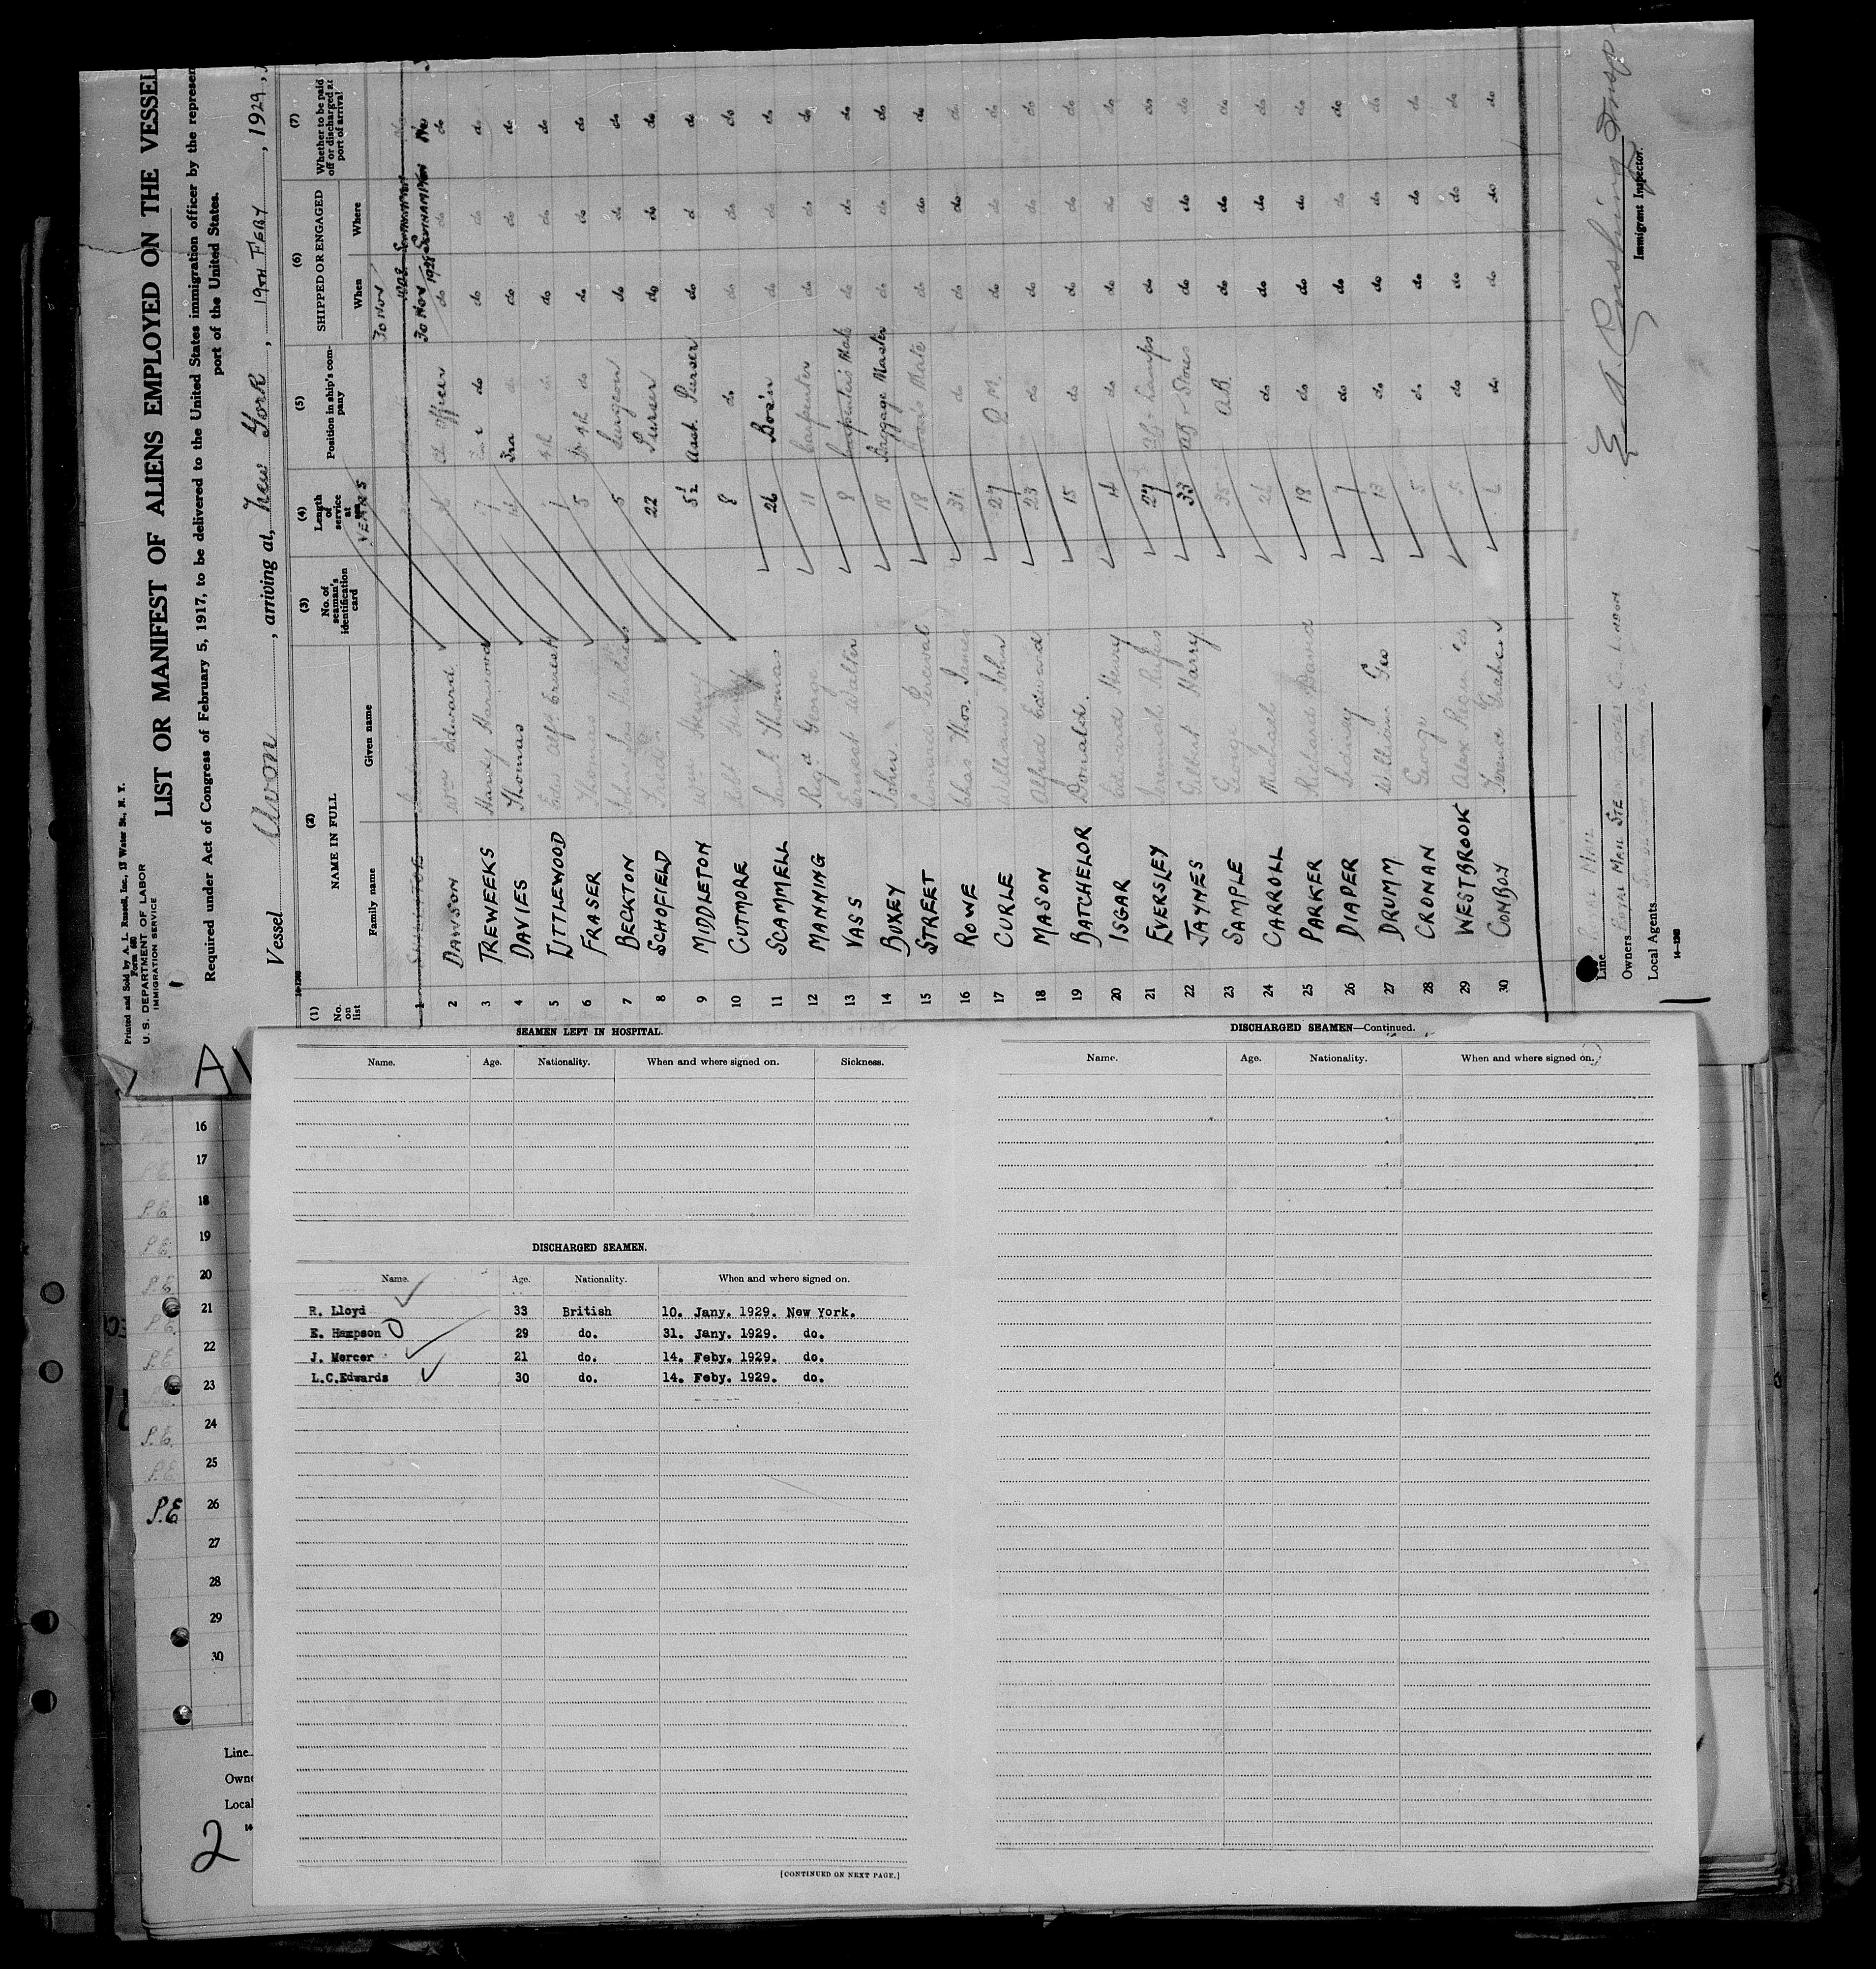 Printed and Sold by A. L. Russell, Inc., 13 Water St., N. Y.
Form 680
U. S. DEPARTMENT OF LABOR
IMMIGRATION SERVICE
LIST OR MANIFEST OF ALIENS EMPLOYED ON THE VESSEL
Required under Act of Congress of February 5, 1917, to be delivered to the United States immigration officer by the represen
port of the United States.
Vessel Avon, arriving at, New York, 19TH FEBY, 1929,
(1) (2) (3) (4) (5) (6) (7)
No. on list NAME IN FULL No. of seaman's identification card Length of service at YEARS Position in ship's company SHIPPED OR ENGAGED Whether to be paid off or discharged at port of arrival
Family name Given name When Where
30 Nov
1 1928
2 DAWSON Edward Ch Officer do do do
30 Nov 1928 SOUTHAMPTON No
3 TREWEEKS Harry Harwood 7 do do do do
4 DAVIES Thomas 3rd do do do
5 LITTLEWOOD Edw Alfd Ernest 1 4th do do do
6 FRASER Thomas 5 4th do do do do
7 BECKTON John 5 Surgeon do do do
8 SCHOFIELD Fred 22 Purser do do do
9 MIDDLETON Henry 5½ Asst. Purser do d do
10 CUTMORE Robt 8 do do do do
11 SCAMMELL Thomas 26 Bos'n do do do
12 MANNING Regd George 11 Carpenter do do do
13 VASS Ernest Walter 9 Carpenters Mate do do do
14 BUXEY John 18 Baggage Master do do do
15 STREET Percival 18 Mate do do do
16 ROWE Chas Thos. James 31 do do do do
17 CURLE William John 27 Q.M. do do do
18 MASON Alfred Edward 23 do do do do
19 BATCHELOR Donald. 15 do do do do
20 ISGAR Edward Henry 14 do do do do
21 EVERSLEY Jeremiah Rufus 27 AB & Lamps do do do
22 JAYNES Gilbert Harry 33 AB & Stores do do do
23 SAMPLE George 35 A.B. do do do
24 CARROLL Michael do do do do
25 PARKER Richard David 18 do do do do
26 DIAPER Sidney 7 do do do do
27 DRUMM William Geo 13 do do do do
28 CRONAN George 5 do do do do
29 WESTBROOK Alex 5 do do do do
30 CONBOY do do do do
Line ROYAL MAIL
Owners ROYAL MAIL STE
Local Agents
14—1240
Immigrant Inspector.
SEAMEN LEFT IN HOSPITAL.
Name. Age. Nationality. When and where signed on. Sickness.
DISCHARGED SEAMEN.
Name. Age. Nationality. When and where signed on.
R. Lloyd 33 British 10. Jany. 1929. New York.
E. Hampson 29 do. 31. Jany. 1929. do.
J. Mercer 21 do. 14. Feby. 1929. do.
L.C.Edwards 30 do. 14. Feby. 1929. do.
[CONTINUED ON NEXT PAGE.]
DISCHARGED SEAMEN—Continued.
Name. Age. Nationality. When and where signed on.
16
17
P.E. 18
P.E. 19
P.E. 20
P.E. 21
P.E. 22
23
P.E. 24
P.E. 25
P.E 26
27
28
29
30
Line
Owne
Local
14
2